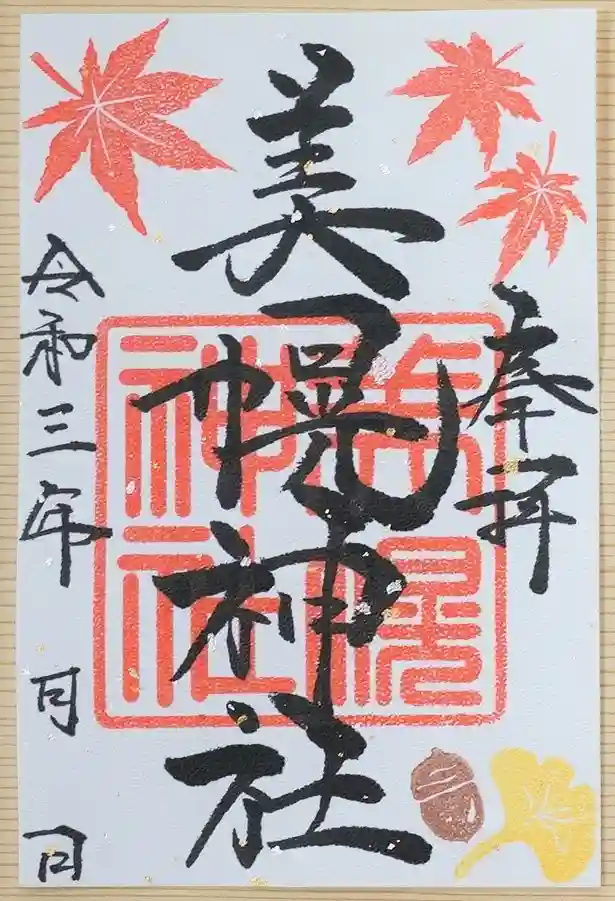 奉拝
美幌神社
美幌神社
令和三年 月 日